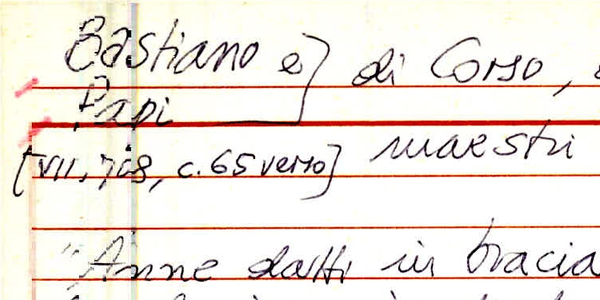 Bastiano e} di Corso,
Papi
[VII, 768, c. 65 verso] maestri
"Anne datti in bracia